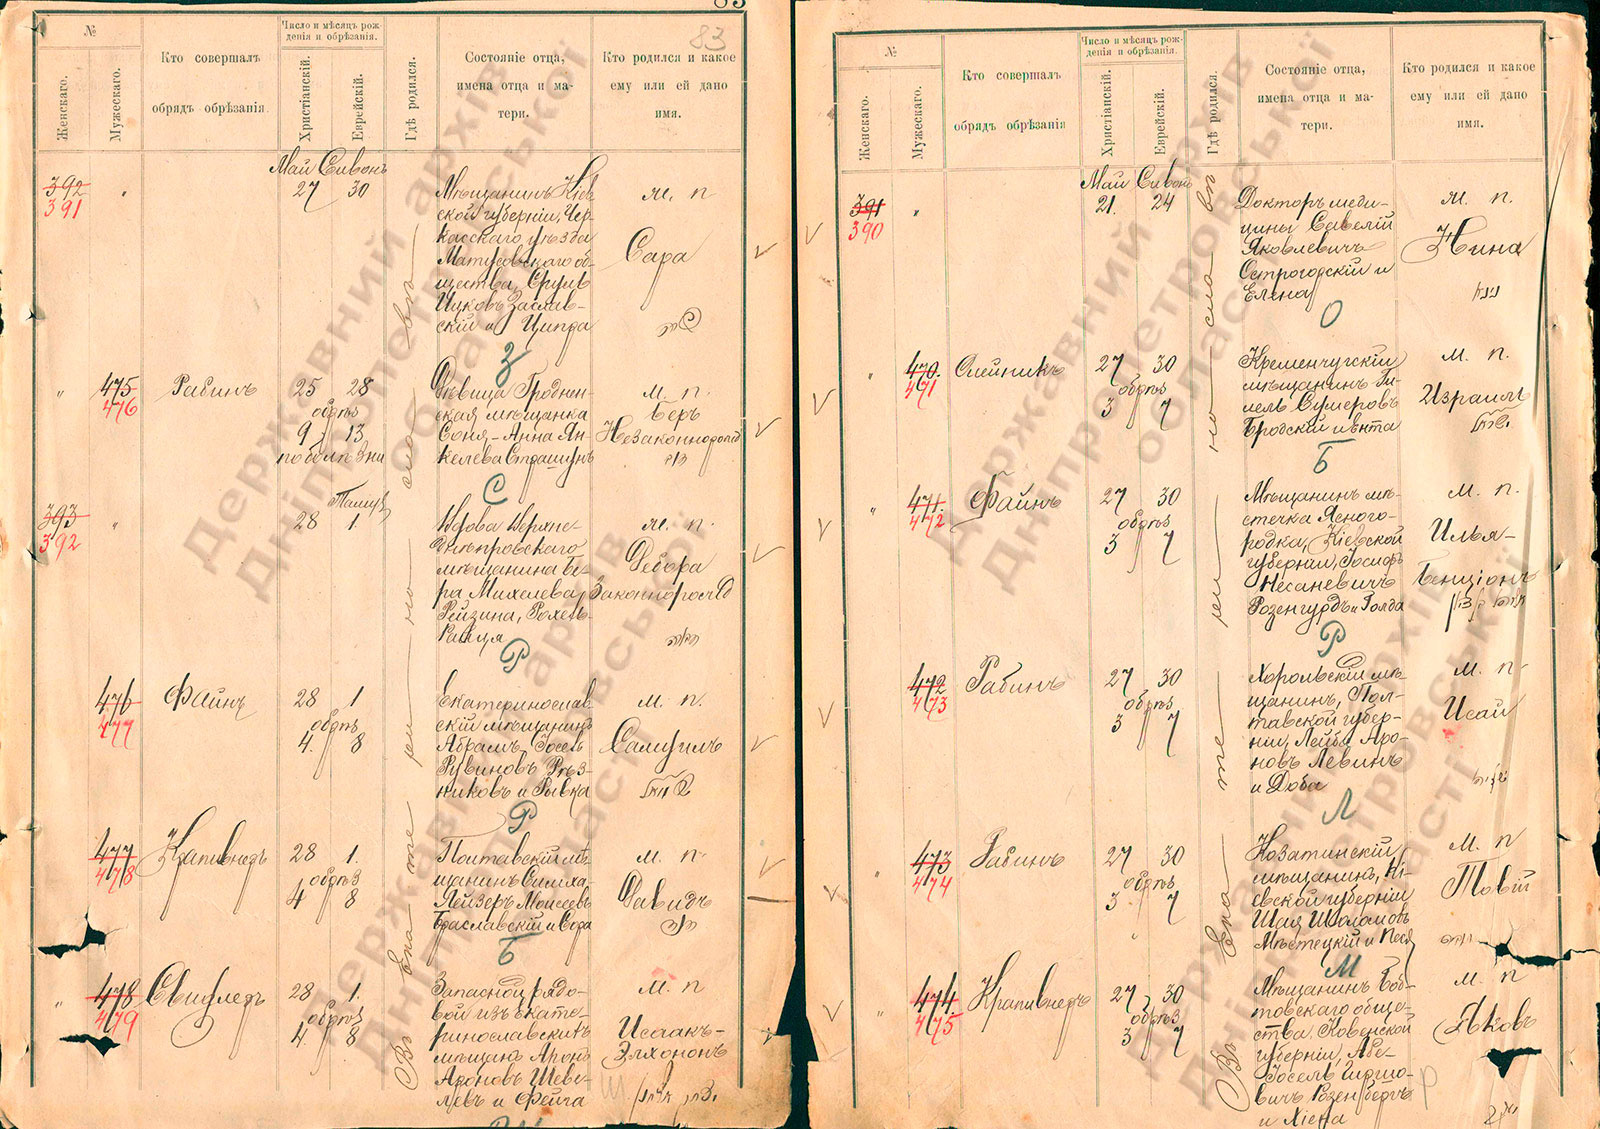 83
83
№
Женскаго.
Мужескаго.
Кто совершалъ
обрядъ обрѣзанія
Число и мѣсяцъ рож-
денія и обрѣзанія.
Христіанскій.
Еврейскій.
Гдѣ родился.
Состояніе отца,
имена отца и ма-
тери.
Кто родился и какое
ему или ей дано
имя.
Май Сивонъ
392
391
"
27 30
Мѣщанинъ Кіев
ской губерніи, Чер-
касскаго уѣзда
Матусовскаго об-
щества, Сруль
Ицковъ Заслав-
скій и Ципра
м. п
Сара
שרה
З
"
475
476
Рабинъ
25 28
обрѣз
9 13
по болѣзни
Дѣвица Гроднен-
ская мѣщанка
Соня-Анна Ян-
келева Страшунъ
м. п.
Беръ
Незаконнорожд
С
393
392
"
Тамузъ
28 1
Вдова Верхне-
днѣпровскаго
мѣщанина Бе-
ра Михелева
Рейзина, Рохель-
Раица
м. п.
Дебора
Законнорожд
Р
476
477
Файнъ
28 1
обрѣз
4. 8
Екатеринослав-
скій мѣщанинъ
Абрамъ-Іосель
Рувиновъ Рѣз-
никовъ и Рывка
м. п.
Самуилъ
שמואל
Р
477
478
Крапивнедъ
28 1.
обрѣз
4 8
Полтавскій мѣ-
щанинъ Симха-
Лейзеръ Моисеевъ
Браславскій и Сора
м. п.
Давидъ
דוד
Б
"
478
479
28 1.
обрѣз
4. 8
Запасной рядо-
вой изъ екате-
ринославскихъ
мѣщанъ Аронъ
Ароновъ Шеве-
левъ и Фейга
м. п
Исаакъ-
Элхононъ
Ш
Въ Екатеринославѣ
№
Женскаго.
Мужескаго.
Кто совершалъ
обрядъ обрѣзанія
Число и мѣсяцъ рож-
денія и обрѣзанія.
Христіанскій.
Еврейскій.
Гдѣ родился.
Состояніе отца,
имена отца и ма-
тери.
Кто родился и какое
ему или ей дано
имя.
Май Сивонъ
391
390
"
21. 24
Докторъ меди-
цины Савелій
Яковлевичъ
Острогорскій и
Елена
м. п.
Нина
О
"
470.
471
Олейникъ
27 30
обрѣз
3 7
Кременчугскій
мѣщанинъ Ги-
лель Сумеровъ
Бродскій и Ента
м. п.
Израиль
ישראל
Б
"
471.
472
Файнъ
27 30
обрѣз
3 7
Мѣщанинъ мѣ-
стечка Ясного-
родка, Кіевской
губерніи, Іосифъ
Несаневичъ
Розенгурдъ и Голда
м. п.
Илья-
Бенціонъ
Р
472
473
Рабинъ
27 30
обрѣз
3 7
Хорольскій мѣ-
щанинъ, Пол-
тавской губер-
ніи, Лейба Аро-
новъ Левинъ
и Доба
м. п
Исай
Л
"
473
474
Рабинъ
27 30
обрѣз
3. 7
Козатинскій
мѣщанинъ, Кі-
евской губерніи
Шая Шоломовъ
Мѣстецкій и Песя
м. п
Товій
М
"
474.
475
Крапивнедъ
27 30
обрѣз
3 7
Мѣщанинъ Боб-
товскаго обще-
ства Ковенской
губерніи, Абе-
Іосель Гиршо-
вичъ Розенбергъ
и Хіена
м. п
Яковъ
Р
Въ Екатеринославѣ
Державний архів
Дніпропетровської
області